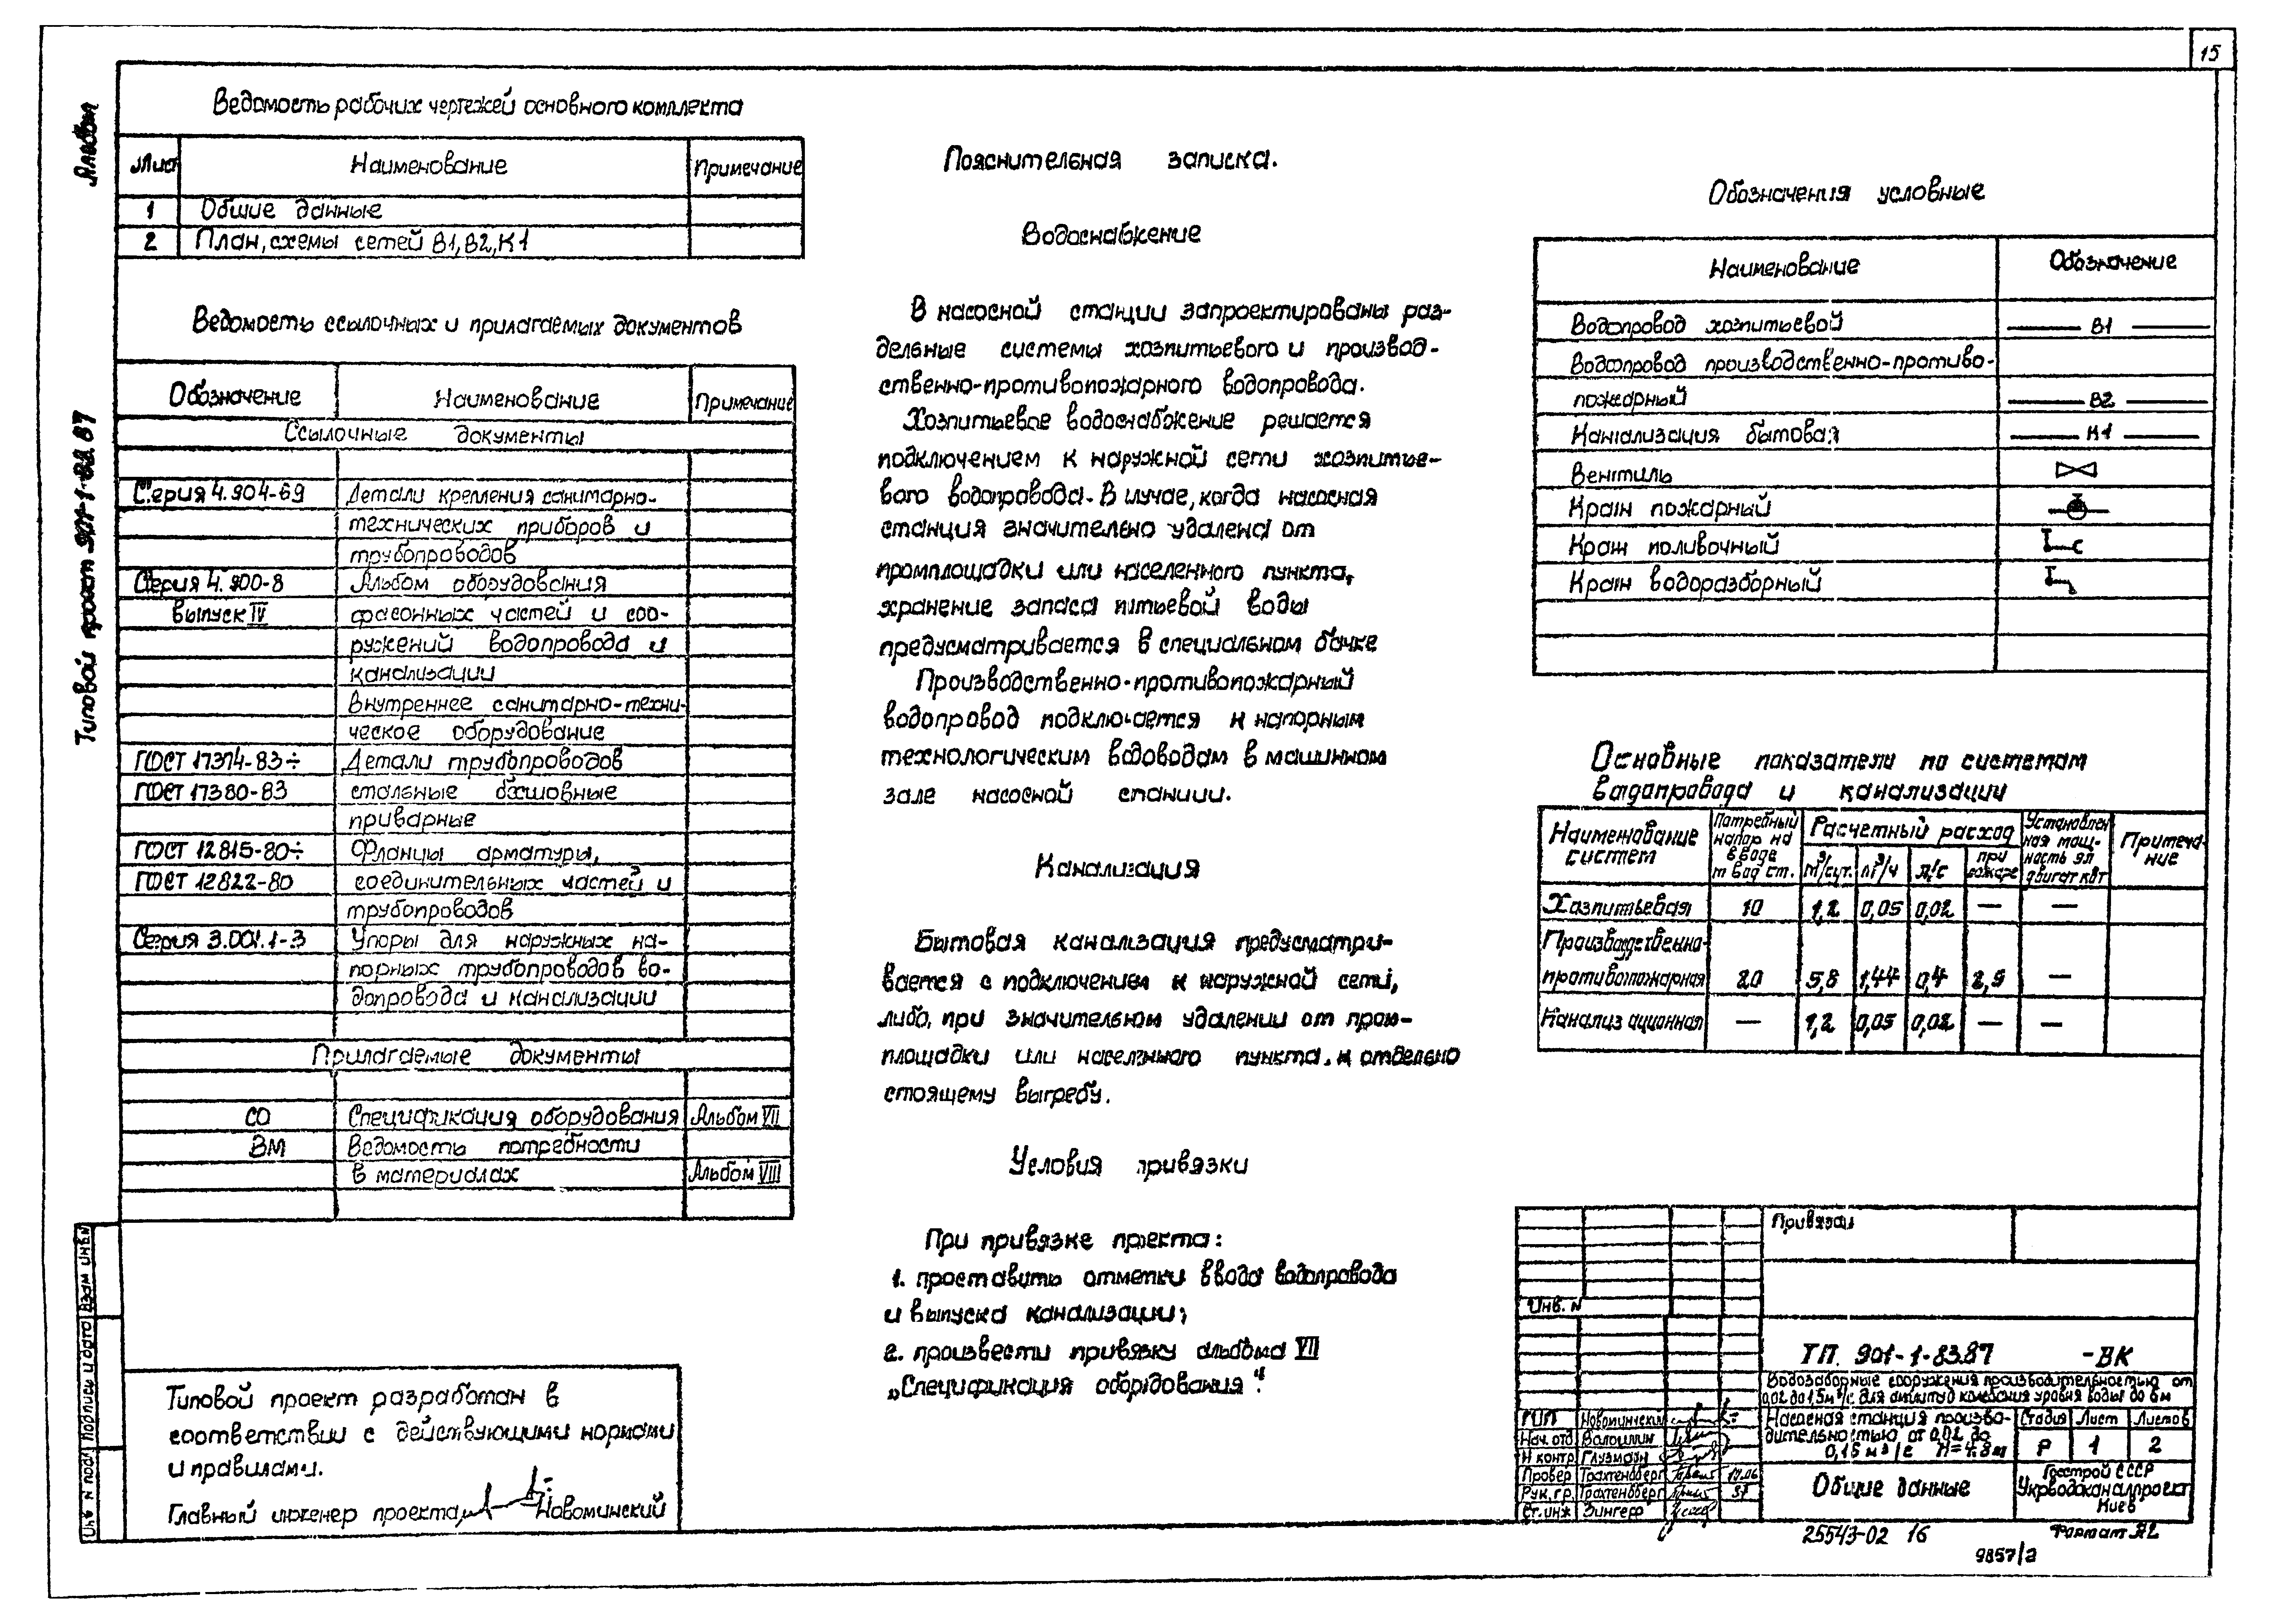 15
Альбом
Типовой проект 901-1-83.87
Ведомость рабочих чертежей основного комплекта
Лист Наименование Примечание
1 Общие данные
2 План, схемы сетей В1, В2, К1
Ведомость ссылочных и прилагаемых документов
Обозначение Наименование Примечание
Ссылочные документы
Серия 4.904-69 Детали крепления санитарно-
технических приборов и
трубопроводов
Серия 4.900-8 Альбом оборудования
выпуск IV фасонных частей и соо-
ружений водопровода и
канализации
Внутреннее санитарно-техни-
ческое оборудование
ГОСТ 17374-83÷ Детали трубопроводов
ГОСТ 17380-83 стальные бесшовные
приварные
ГОСТ 12815-80÷ Фланцы арматуры,
ГОСТ 12822-80 соединительных частей и
трубопроводов
Серия 3.001.1-3 Упоры для наружных на-
порных трубопроводов во-
допровода и канализации
Прилагаемые документы
СО Спецификация оборудования Альбом VII
ВМ Ведомость потребности
в материалах Альбом VIII
Типовой проект разработан в
соответствии с действующими нормами
и правилами.
Главный инженер проекта Новоминский
Взам инв. N
Подпись и дата
Инв N подл
Пояснительная записка.
Водоснабжение
В насосной станции запроектированы раз-
дельные системы хозпитьевого и производ-
ственно-противопожарного водопровода.
Хозпитьевое водоснабжение решается
подключением к наружной сети хозпитье-
вого водопровода. В случае, когда насосная
станция значительно удалена от
промплощадки или населенного пункта,
хранение запаса питьевой воды
предусматривается в специальном бачке
Производственно-противопожарный
водопровод подключается к напорным
технологическим водоводам в машинном
зале насосной станции.
Канализация
Бытовая канализация предусматри-
вается с подключением к наружной сети,
либо, при значительном удалении от пром-
площадки или населенного пункта, к отдельно
стоящему выгребу.
Условия привязки
При привязке проекта:
1. проставить отметки ввода водопровода
и выпуска канализации;
2. произвести привязку альбома VII
„Спецификация оборудования".
Обозначения условные
Наименование Обозначение
Водопровод хозпитьевой В1
Водопровод производственно-противо-
пожарный В2
Канализация бытовая К1
Вентиль
Кран пожарный
Кран поливочный
Кран водоразборный
Основные показатели по системам
водопровода и канализации
Наименование систем Потребный напор на вводе м вод ст. Расчетный расход м³/сут. м³/ч л/с при пожаре Установлен ная мощ- ность эл двигат кВт Примеча- ние
Хозпитьевая 10 1,2 0,05 0,02 — —
Производственно-
противопожарная 20 5,8 1,44 0,4 2,9 —
Канализационная — 1,2 0,05 0,02 — —
Привязан
Инв. N
ТП 901-1-83.87 -ВК
Водозаборные сооружения производительностью от
0,02 до 1,5 м³/с для амплитуд колебания уровня воды до 6м
ГИП Новоминский
Нач. отд Волошин
Н контр Глузман
Провер Трахтенберг 17.06
Рук. гр. Трахтенберг 87
Ст. инж Зингер
Насосная станция произво-
дительностью от 0,02 до
0,15 м³/с Н=4.8м
Стадия Лист Листов
Р 1 2
Общие данные
Госстрой СССР
Укрводоканалпроект
Киев
25543-02 16
Формат А2
9857/2